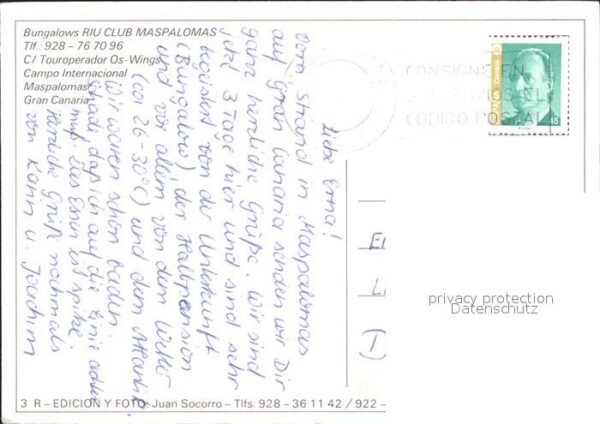 Bungalows RIU CLUB MASPALOMAS
Tlf.: 928 – 76 70 96
C/ Touroperador Os-Wings
Campo Internacional
Maspalomas
Gran Canaria
CONSIGNE EN
CODIGO POSTAL
ESPAÑA
45
Liebe Erna!
Vom Strand in Maspalomas
auf Gran Canaria senden wir Dir
ganz herzliche Grüße. Wir sind
jetzt 3 Tage hier und sind sehr
begeistert von der Unterkunft
(Bungalow) der Halbpension
und vor allem von dem Wetter
(ca 26-30°C) und dem Atlantik
Wir waren schon baden.
Schade, daß ich auf die Linie achten
muß. Das Essen ist spitze.
Herzliche Grüße nochmals
von Karin u. Joachim
privacy protection
Datenschutz
3 R – EDICION Y FOTO: Juan Socorro – Tlfs. 928 – 36 11 42 / 922 –